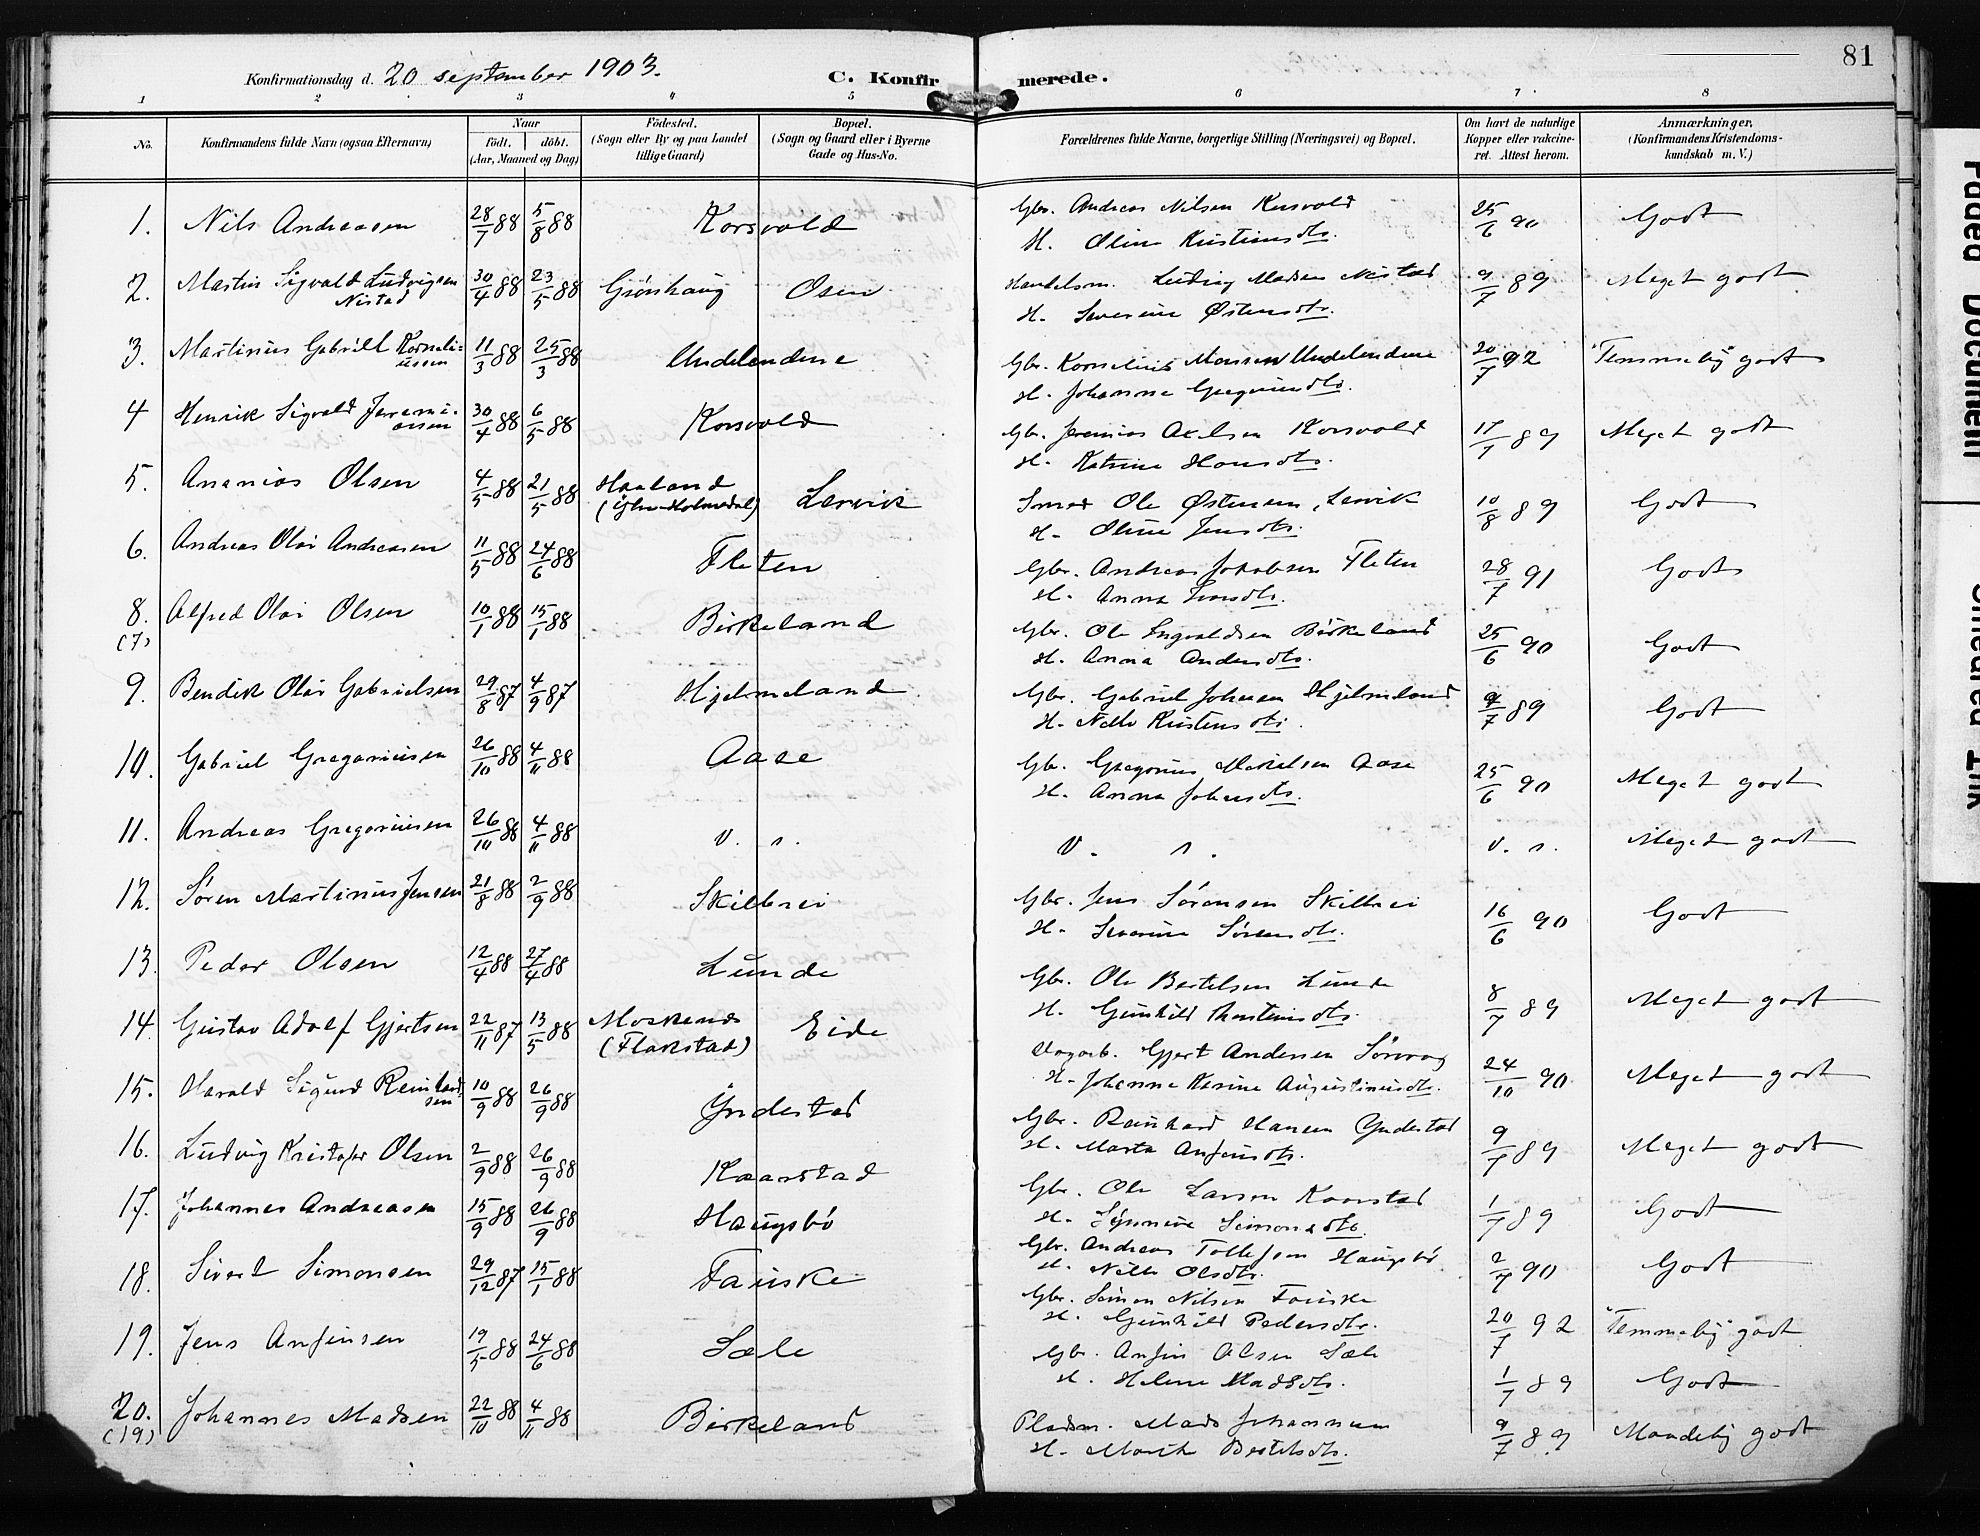 81
Konfirmationsdag d. 20 september 1903. C. Konfirmerede.
1 2 3 4 5 6 7 8
No. Konfirmandens fulde Navn (ogsaa Efternavn) Naar født. døbt. (Aar, Maaned og Dag) Fødested. (Sogn eller By og paa Landet tillige Gaard) Bopæl. (Sogn og Gaard eller i Byerne Gade og Hus-No. Forældrenes fulde Navne, borgerlige Stilling (Næringsvei) og Bopæl. Om havt de naturlige Kopper eller vakcineret. Attest herom. Anmærkninger. (Konfirmandens Kristendomskundskab m. V.)
1. Nils Andreasen 28/7 88 5/8 88 Korsvold Gbr. Andreas Nilsen Korsvold 25/6 90 Godt
H. Oline Kristensdtr.
2. Martin Sigvald Ludvigsen Nistad 30/4 88 23/5 88 Grønhaug Osen Handelsm. Ludvig Madsen Nistad 9/7 89 Meget godt
H. Severine Østensdtr.
3. Martinus Gabriel Korneliussen 11/3 88 25/3 88 Undelandene Gbr. Kornelius Monsen Undelandene 20/7 92 "Temmelig" godt
H. Johanne
4 Henrik Sigvald Jeremiassen 30/4 88 6/5 88 Korsvold Gbr. Jeremias Axelsen Korsvold 17/7 89 Meget godt
H. Katrine Hansdtr.
5. Ananias Olsen 4/5 88 21/5 88 Haaland (Ytre-Holmedal) Lervik Smed Ole Østensen, Lervik 10/8 89 Godt
H. Oline Jensdtr.
6. Andreas Olai Andreasen 11/5 88 24/6 88 Fleten Gbr. Andreas Jakobsen Fleten 28/7 91 Godt
H. Anna Ivarsdtr.
8. (7) Alfred Olai Olsen 10/1 88 15/1 88 Birkeland Gbr. Ole Ingvaldsen Birkeland 25/6 90 Godt
H. Anna Andersdtr.
9. Bendik Olai Gabrielsen 29/8 87 4/9 87 Hjelmeland Gbr. Gabriel Johnsen Hjelmeland 9/7 89 Godt
H. Nelle Kristensdtr.
10. Gabriel Gregoriusen 26/10 88 4/11 88 Aase Gbr. Gregorius Mikelsen Aase 25/6 90 Meget godt
H. Anna Johansdtr.
11. Andreas Gregoriusen 26/10 88 4/11 88 v. s. v. s. v. s. Meget godt
12. Søren Martinus Jensen 21/8 88 2/9 88 Skilbrei Gbr. Jens Sørensen Skilbrei 16/6 90 Godt
H. Severine Sørensdtr.
13. Peder Olsen 12/4 88 27/4 88 Lunde Gbr. Ole Bertelsen Lunde 8/7 89 Meget godt
H. Gunhild Thorsteinsdtr.
14. Gustav Adolf Gjertsen 22/11 87 13/5 88 Moskenes (Flakstad) Eide Gjert Andersen Sørvaag 24/10 90 Meget godt
H. Johanna Karine Augustinusdtr.
15. Harald Sigurd Reinhardsen 10/9 88 26/9 88 Yndestad Gbr. Reinhard Hansen Yndestad 9/7 89 Meget godt
H. Marta Anfinsdtr.
16. Ludvig Kristofer Olsen 2/9 88 26/9 88 Kaarstad Gbr. Ole Larsen Kaarstad 1/7 89 Godt
H. Synneve Simonsdtr.
17. Johannes Andreasen 15/9 88 26/9 88 Haugsbø Gbr. Andreas Tollefsen Haugsbø 2/7 90 Godt
H. Nille Olsdtr.
18. Sivert Simonsen 29/12 87 15/1 88 Fauske Gbr. Simon Nilsen Fauske 20/7 92 "Temmelig" godt
H. Gunhild Pedersdtr.
19. Jens Anfinsen 19/5 88 24/6 88 Sæle Gbr. Anfin Olsen Sæle 1/7 89 Godt
H. Helene Madsdtr.
20. (19) Johannes Madsen 22/10 88 4/11 88 Birkeland Pladsm. Mads Johannesen 9/7 89 Maadelig godt
H. Marth Bertelsdtr.
Faded Document
Smeared Ink